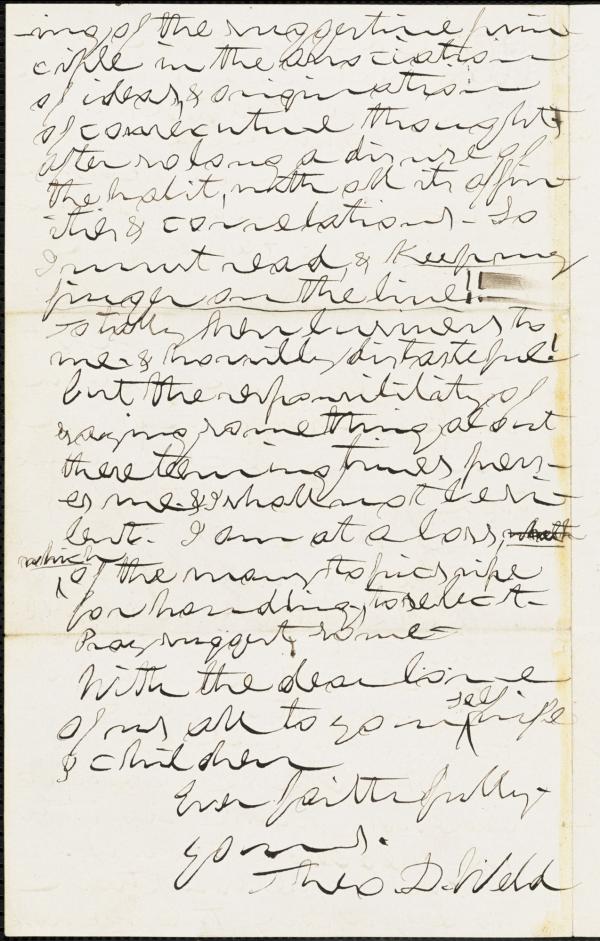 ing of the suggestive prin-
ciple in the association
of ideas, & origination
of consecutive thought
after so long a disuse of
the habit, with all its affin-
ities & correlations - So
I must read, & keeping
finger on the line!!
Totally new business to
me - & horribly distasteful!
but the responsibility of
saying something about
these teeming times press-
es me - & I shall not be si-
lent. I am at a loss,
which
of the many topics ripe
for handling, to select -
Pray suggest some -
With the dear love
of us all to your self wife
& children
Ever faithfully
yours.
Theo. D. Weld